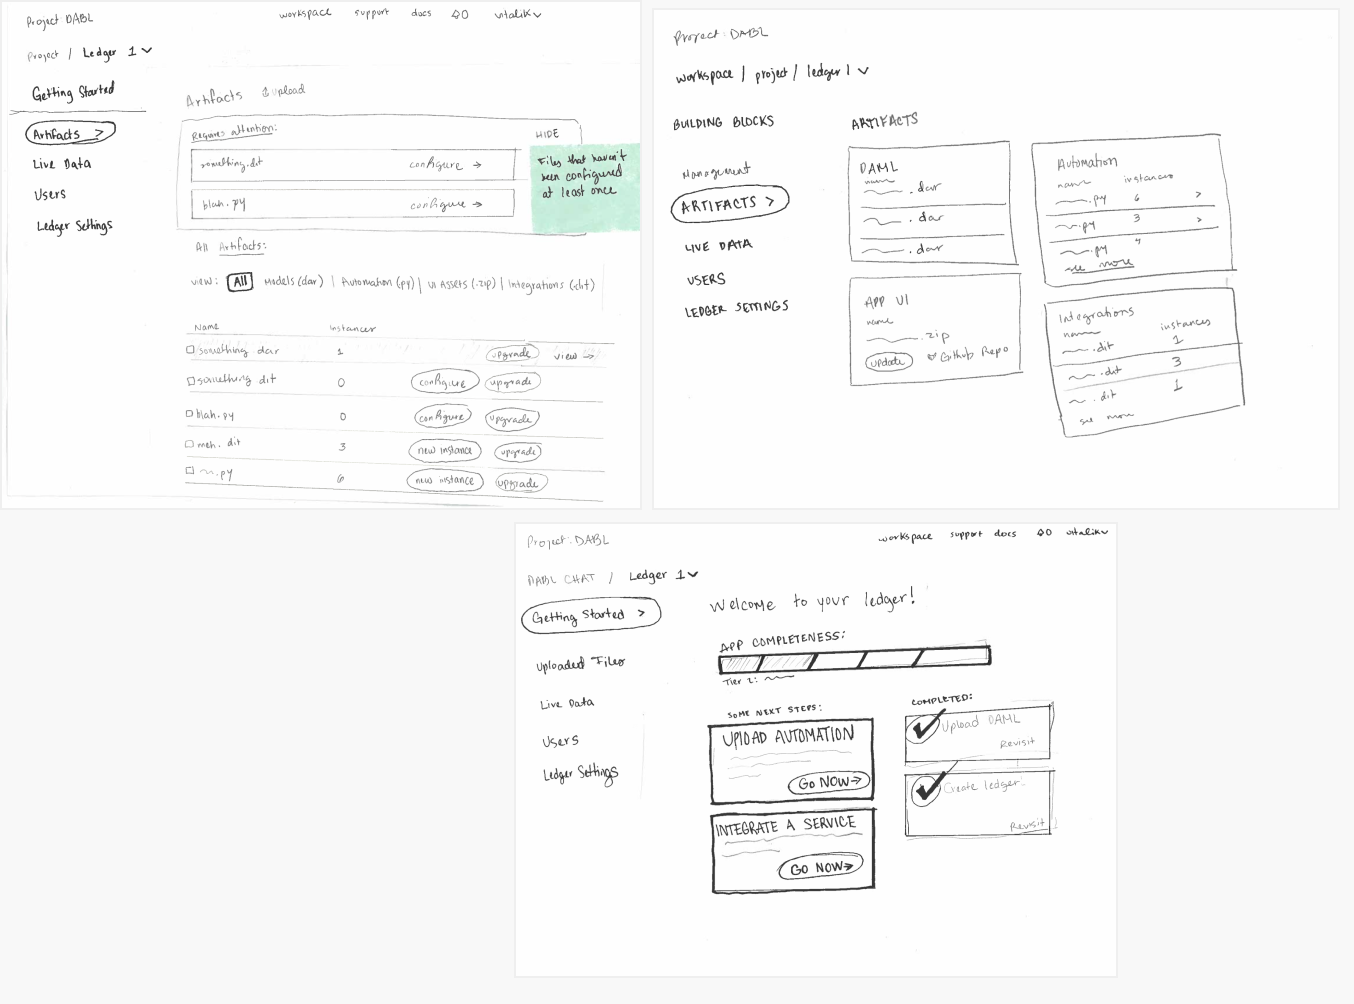 Project DABL
workspace support docs 0 vitalik
Project / Ledger 1
Getting Started
Artifacts >
Live Data
Users
Ledger Settings
Artifacts Upload
Requires attention:
HIDE
something.dit configure →
blah.py configure →
Files that haven't
been configured
at least once
All Artifacts:
view: All Models (dar) | Automation (py) | UI Assets (.zip) | Integrations (.dit)
Name Instances
something dar 1 upgrade view →
something dit 0 configure upgrade
blah.py 0 configure upgrade
meh.dit 3 new instance upgrade
.py 6 new instance upgrade
Project: DABL
workspace / project / ledger 1
BUILDING BLOCKS
Management
ARTIFACTS >
LIVE DATA
USERS
LEDGER SETTINGS
ARTIFACTS
DAML
name
.dar
.dar
.dar
APP UI
name
.zip
update Github Repo
Automation
name instances
.py 6 >
.py 3 >
.py
see more
Integrations
name instances
.dit 1
.dit 3
.dit 1
see more
Project: DABL
workspace support docs 0 vitalik
DABL CHAT / Ledger 1
Getting Started >
Uploaded Files
Live Data
Users
Ledger Settings
Welcome to your ledger!
APP COMPLETENESS:
Tier 2:
SOME NEXT STEPS:
UPLOAD AUTOMATION
GO NOW →
INTEGRATE A SERVICE
GO NOW →
COMPLETED:
Upload DAML
Revisit
Create ledger
Revisit